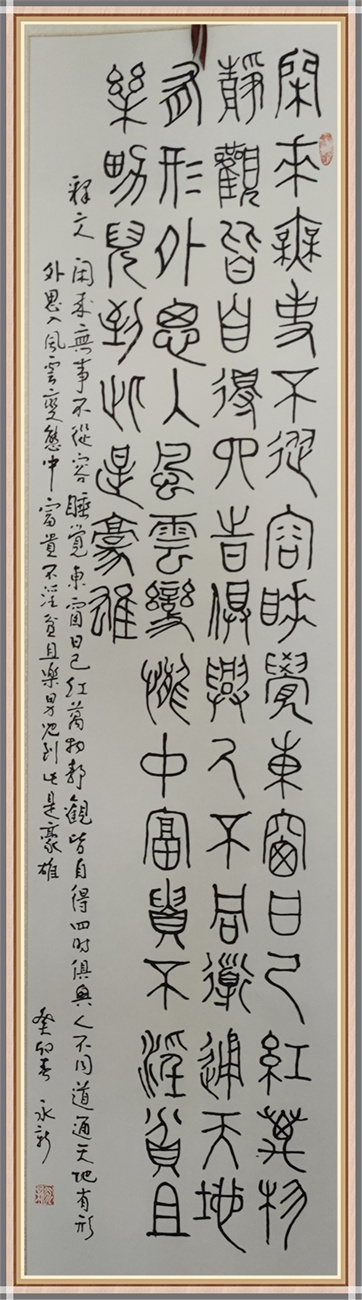 閑來無事不從容睡覺東窗日已紅萬物
靜觀皆自得四時俱與人不同道通天地
有形外思入風雲變態中富貴不淫貧且
樂男兒到此是豪雄
釋文 閑來無事不從容睡覺東窗日已紅萬物靜觀皆自得四时俱與人不同道通天地有形
外思入風雲變態中富貴不淫貧且樂男兒到此是豪雄
癸卯春 永新